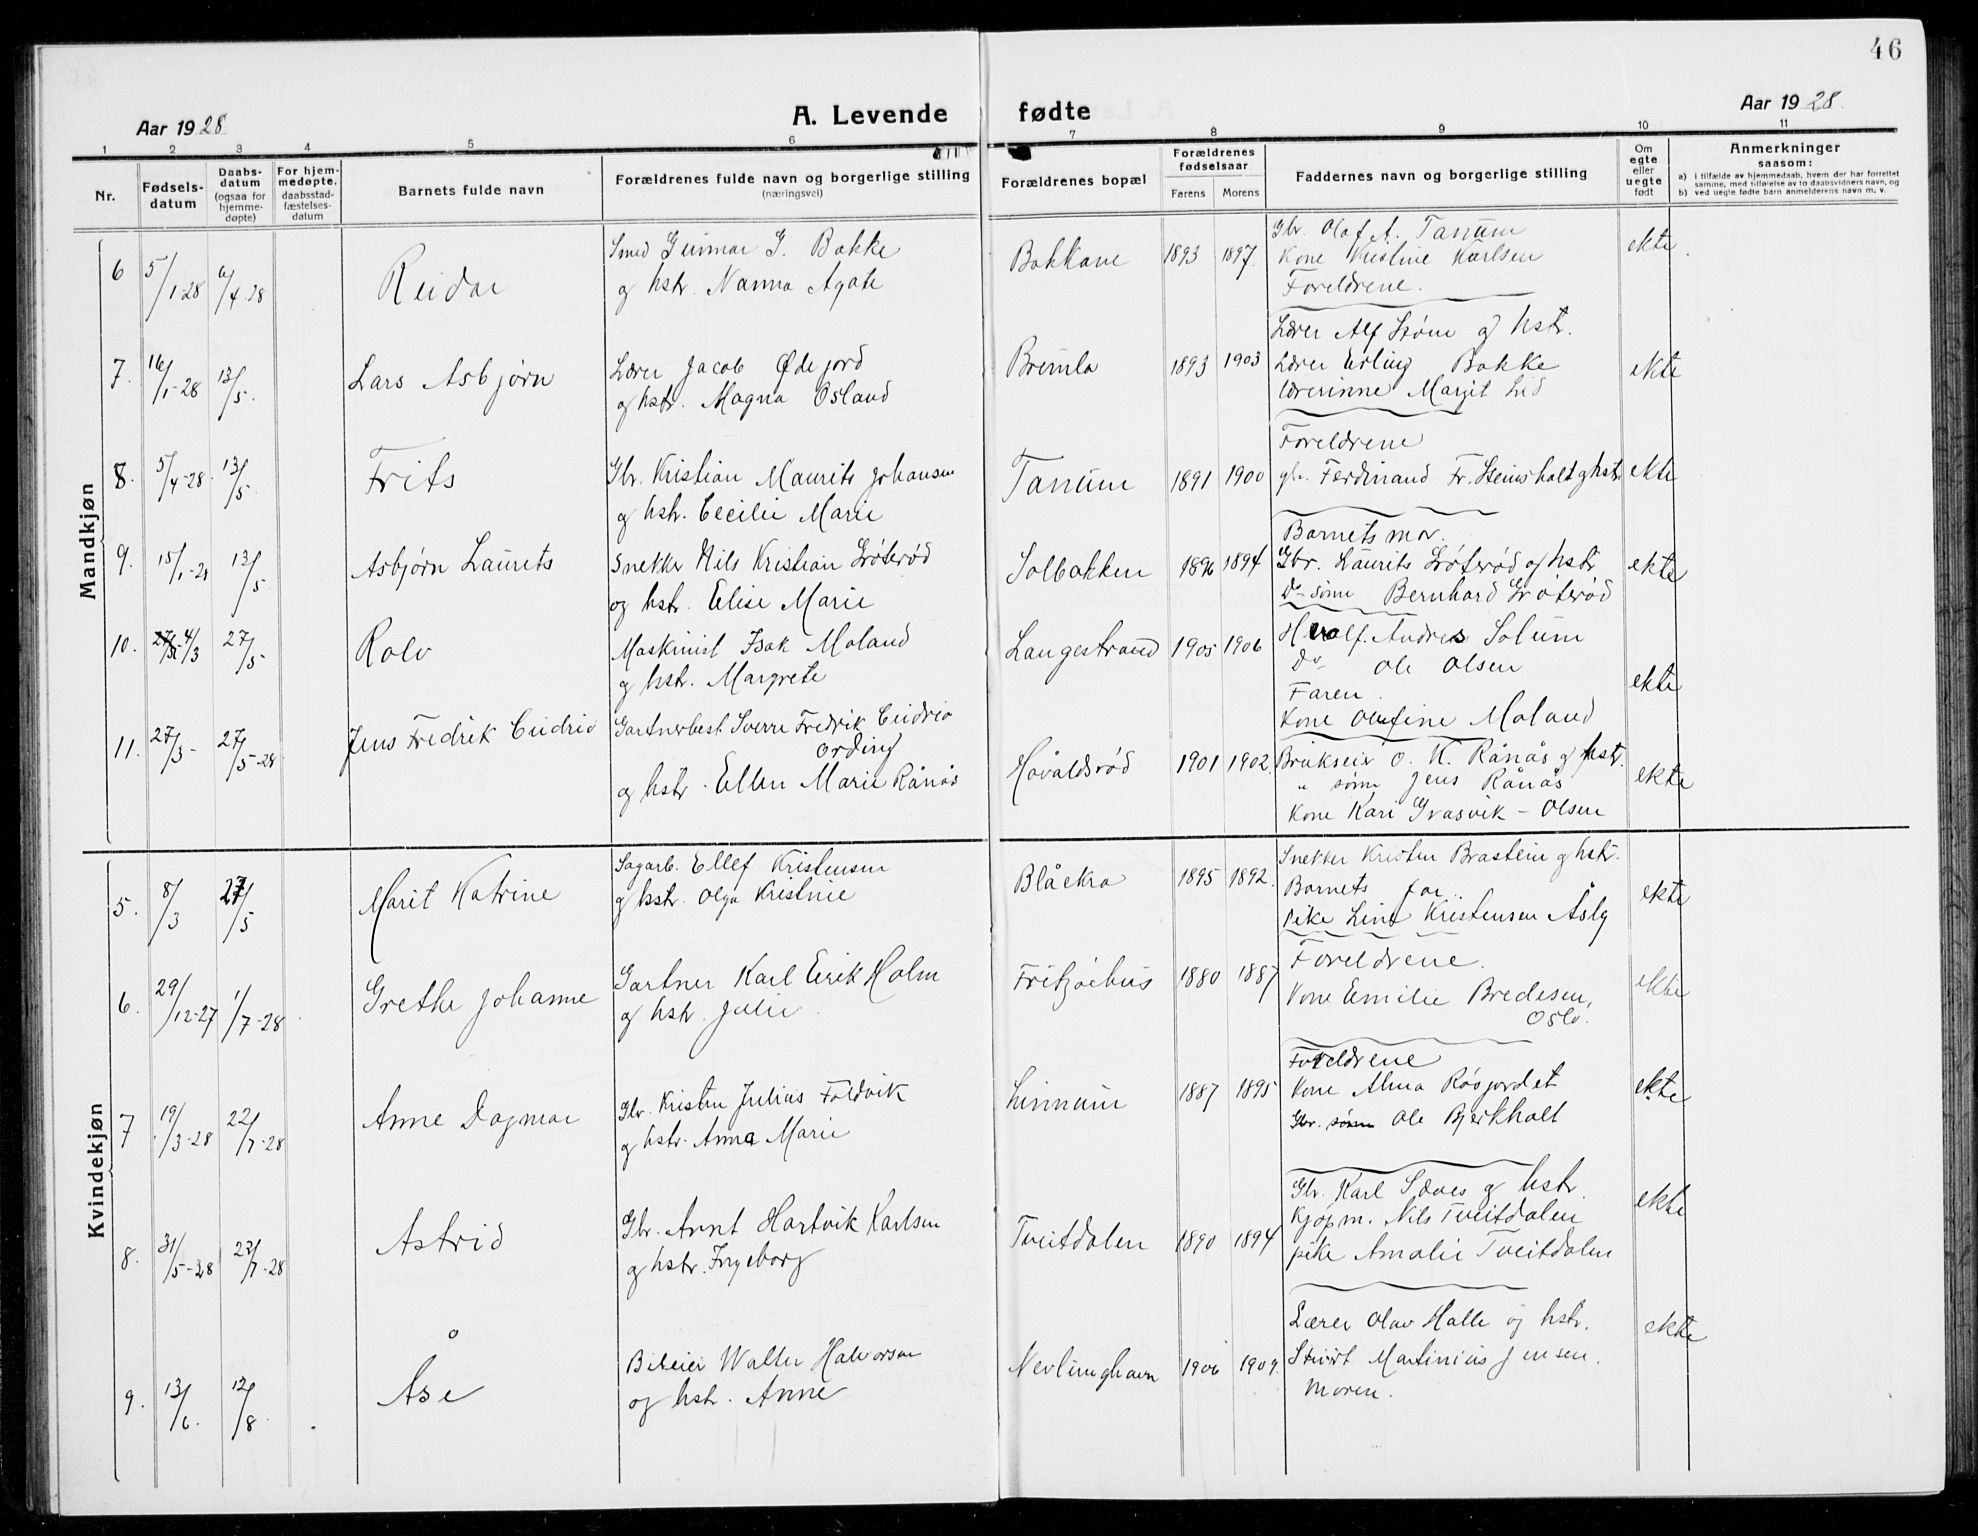 46
Aar 1928
A. Levende
fødte
Aar 1928.
1 2 3 4 5 6 7 8 9 10 11
Nr.
Fødsels-
datum
Daabs-
datum
(ogsaa for
hjemme-
døpte)
For hjem-
medøpte.
daabsstad-
fæstelses-
datum
Barnets fulde navn
Forældrenes fulde navn og borgerlige stilling
(næringsvei)
Forældrenes bopæl
Forældrenes
fødselsaar
Farens
Morens
Faddernes navn og borgerlige stilling
Om
egte
eller
uegte
født
Anmerkninger
saasom:
a) i tilfælde av hjemmedaab, hvem der har forrettet
samme, med tilføielse av to daabsvidners navn, og
b) ved uegte fødte barn anmelderens navn m. v.
Mandkjøn
6 5/1-28 6/4-28 Reidar
Smed Gunnar G. Bakke
og hstr. Nanna Agate
Bakkane 1893 1897.
Gbr. Olaf A. Tanum
Kone Kristine Karlsen
Foreldrene.
ekte.
7. 16/1-28 13/5. Lars Asbjørn
Lærer Jacob Ødejord
og hstr. Magna Osland
Bremla 1893 1903
Lærer Alf Strøm og hstr.
Lærer Erling Bakke
lærerinne Margit Lid
ekte
8. 5/4-28. 13/5. Frits
Gbr. Kristian Maurits Johansen
og hstr. Cecilie Marie
Tanum 1891 1900
Foreldrene
gbr. Ferdinand Fr. Heimsholt og hstr
ekte
9. 15/1-28 13/5 Asbjørn Laurits
Snekker Nils Kristian Trøterød
og hstr. Elise Marie
Solbakken 1896 1894
Barnets mor.
Gbr. Laurits Trøterød og hstr
Do sønn Bernhard Trøterød
ekte
10. 4/3 27/5 Rolv
Maskinist Isak Moland
og hstr. Margrete
Langestrand 1905 1906
Andres Solum
Do Ole Olsen
Faren.
Kone Olefine Moland
ekte
11. 27/3- 27/5-28 Jens Fredrik Cudrio
Gartnerbest Sverre Fredrik Cudrio
Ording
og hstr. Ellen Marie Rånås
Håvaldsrød 1901 1902.
Brukseier O. K. Rånås og hstr.
" sønn Jens Rånås
Kone Kari Grasvik - Olsen
ekte
Kvindekjøn
5. 8/3 27/5 Marit Katrine
Sagarb. Ellef Kristensen
og hstr. Olga Kristine
Blåekra 1895 1892.
Snekker Kristen Brastein og hstr.
Barnets far..
Pike Lina Kristensen Åsly
ekte
6. 29/12-27 1/7-28 Grethe Johanne
Gartner Karl Eirik Holm
og hstr. Julie
Fritzøehus 1880 1887
Foreldrene.
Kone Emilie Bredesen,
Oslo.
ekte
7 19/3-28 22/7-28 Anne Dagmar
Gbr. Kristen Julius Foldvik
og hstr. Anna Marie
Linnum 1887 1895
Foreldrene
Kone Alma Røsjordet
Gbr. sønn Ole Bjerkholt
ekte
8. 31/5-28 22/7-28 Astrid
Gbr. Arnt Hartvik Karlsen
og hstr. Ingeborg
Tveitdalen 1890 1894
Gbr. Karl Sæves og hstr.
Kjøpm. Nils Tveitdalen
pike Amalie Tveitdalen
ekte
9. 13/6. 12/8. Åse
Bileier Walter Halvorsen
og hstr. Anne
Nevlunghavn 1906 1909.
Lærer Olav Halle og hstr.
Martinius Jensen.
Moren.
ekte